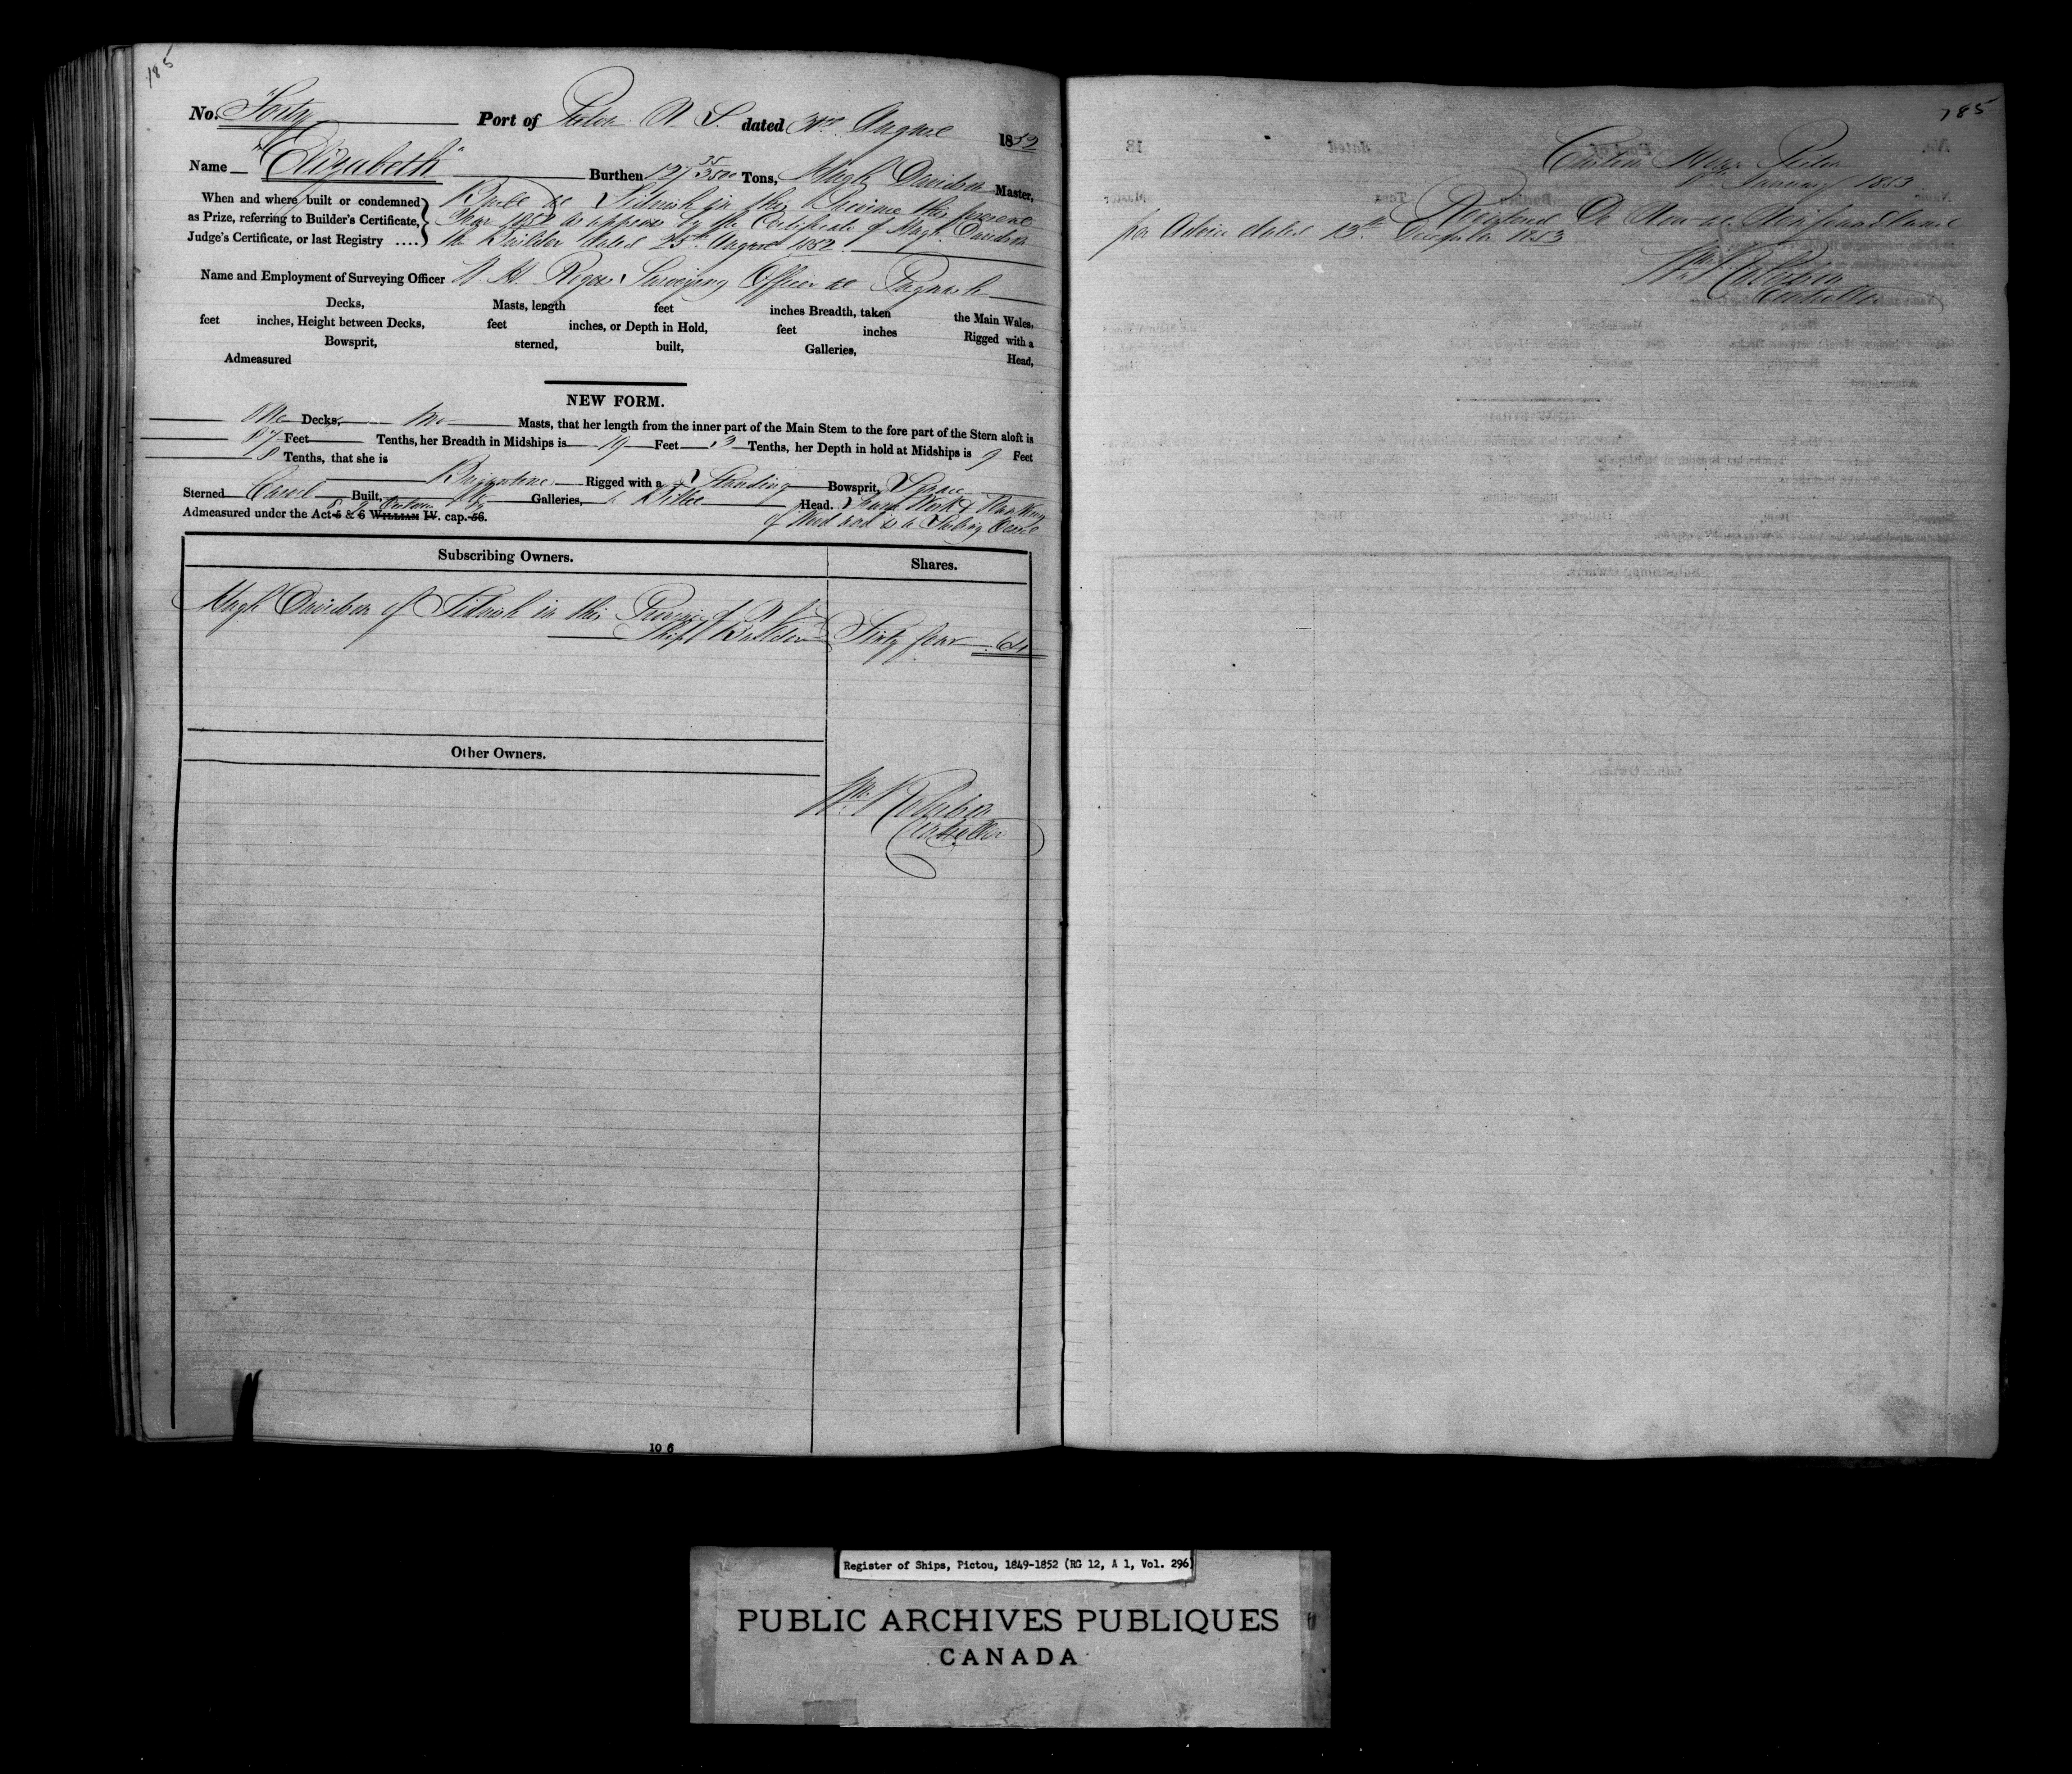 185
No. Forty Port of Pictou N. S. dated 31st August 1852
Name "Elizabeth" Burthen 127 35/3500 Tons, Hugh Davidson Master,
When and where built or condemned as Prize, referring to Builder's Certificate, Judge's Certificate, or last Registry ....
Built at Tidnish in this Province this present
Year 1852 as appears by the Certificate of Hugh Davidson
the Builder dated 25th August 1852.
Name and Employment of Surveying Officer Surveying Officer at Pugwash
Decks, Masts, length feet inches Breadth, taken the Main Wales,
feet inches, Height between Decks, feet inches, or Depth in Hold, feet inches Rigged with a
Bowsprit, sterned, built, Galleries, Head,
Admeasured
NEW FORM.
One Decks, Two Masts, that her length from the inner part of the Main Stem to the fore part of the Stern aloft is
87 Feet Tenths, her Breadth in Midships is 19 Feet 3 Tenths, her Depth in hold at Midships is 9 Feet
8 Tenths, that she is
Brigantine Rigged with a Standing Bowsprit, Square
Sterned Carvel Built, No Galleries, Billet Head. Frame Work & Planking
Admeasured under the Act 5 & 6 WILLIAM IV. cap. 56. 8 & 9 Victoria
of Wood and is a Sailing Vessel
Subscribing Owners. Shares.
Hugh Davidson of Tidnish in this Province of N S
Ship Builder Sixty four 64
Other Owners.
Wm Robertson
Controller
10 6
185
Custom House Pictou
January 1853
Registered De Novo at Newfoundland
per Advice dated 13th December 1853
Wm Robertson
Controller
Register of Ships, Pictou, 1849-1852 (RG 12, A 1, Vol. 296)
PUBLIC ARCHIVES PUBLIQUES
CANADA